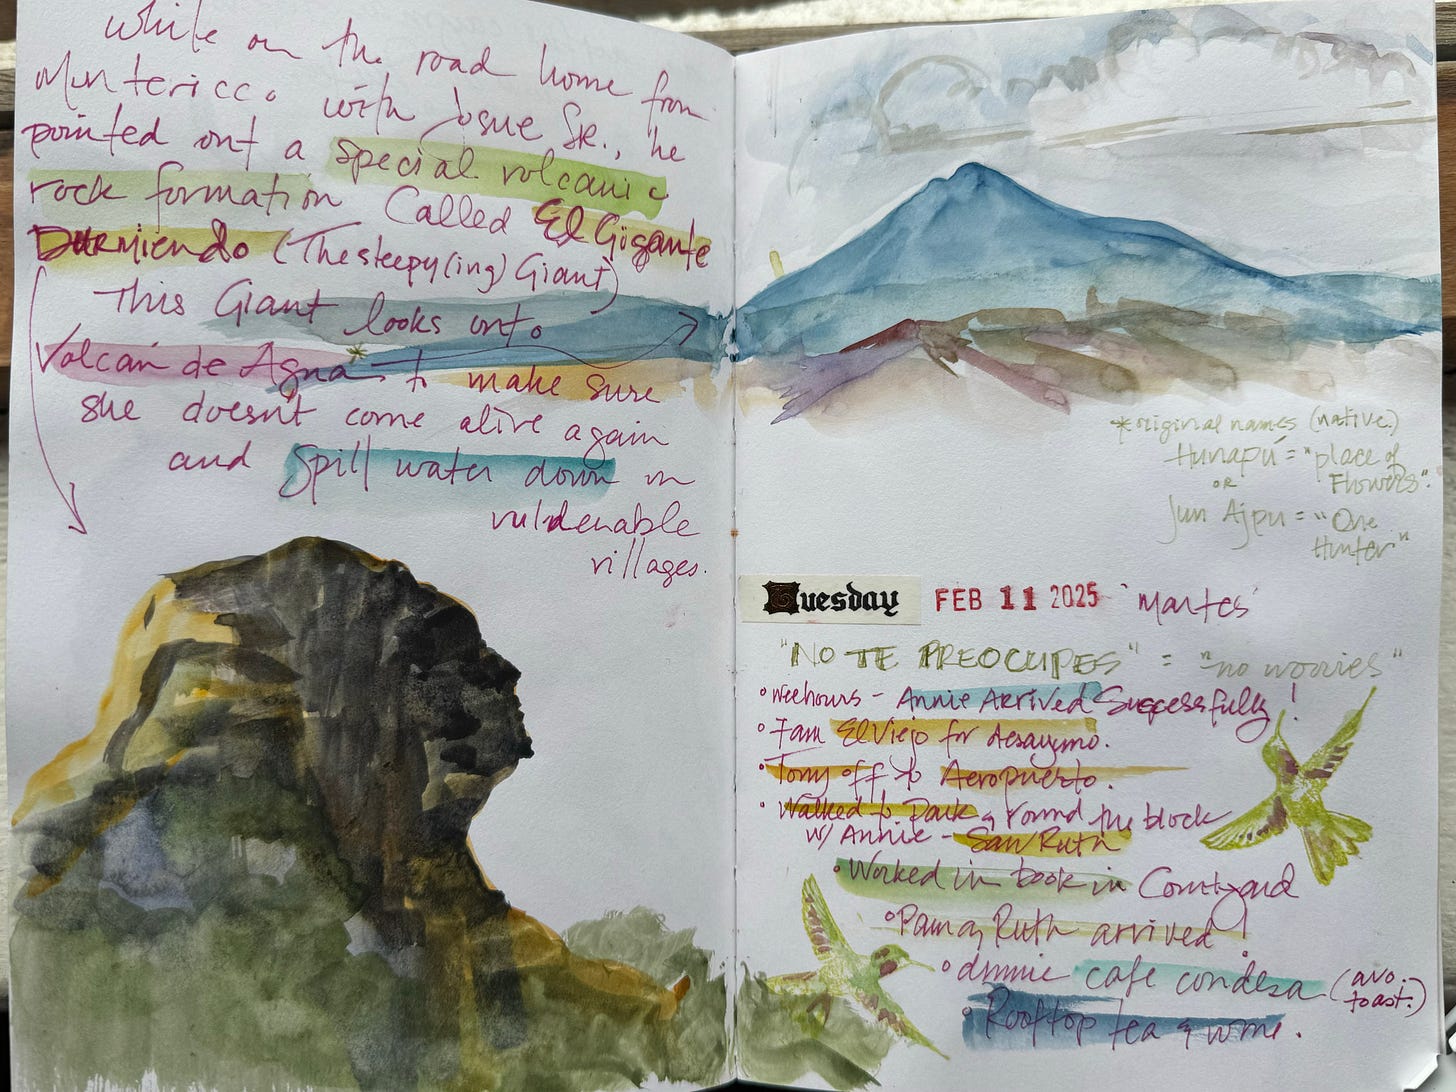 While on the road home from
Montericco with Josue Sr., he
pointed out a special volcanic
rock formation Called El Gigante
Durmiendo (The sleepy(ing) Giant)
This Giant looks onto
Volcán de Agua - to make sure
she doesnt come alive again
and Spill water down on
vulderable
villages.
*original names (native)
Hunapú = "place of
Flowers".
OR
Jun Ajpu = "One
Hunter"
Tuesday FEB 11 2025 'Martes'
"NO TE PREOCUPES" = "no worries"
• weehours - Annie Arrived Successfully!
• 7am El Viejo for desayuno.
• Tony off to Aeropuerto.
• Walked to Park & round the block
w/ Annie - Saw Ruth
• Worked in book in Courtyard
• Pam & Ruth arrived!
• dinnie cafe condesa (avo.
toast.)
• Rooftop tea & wine.